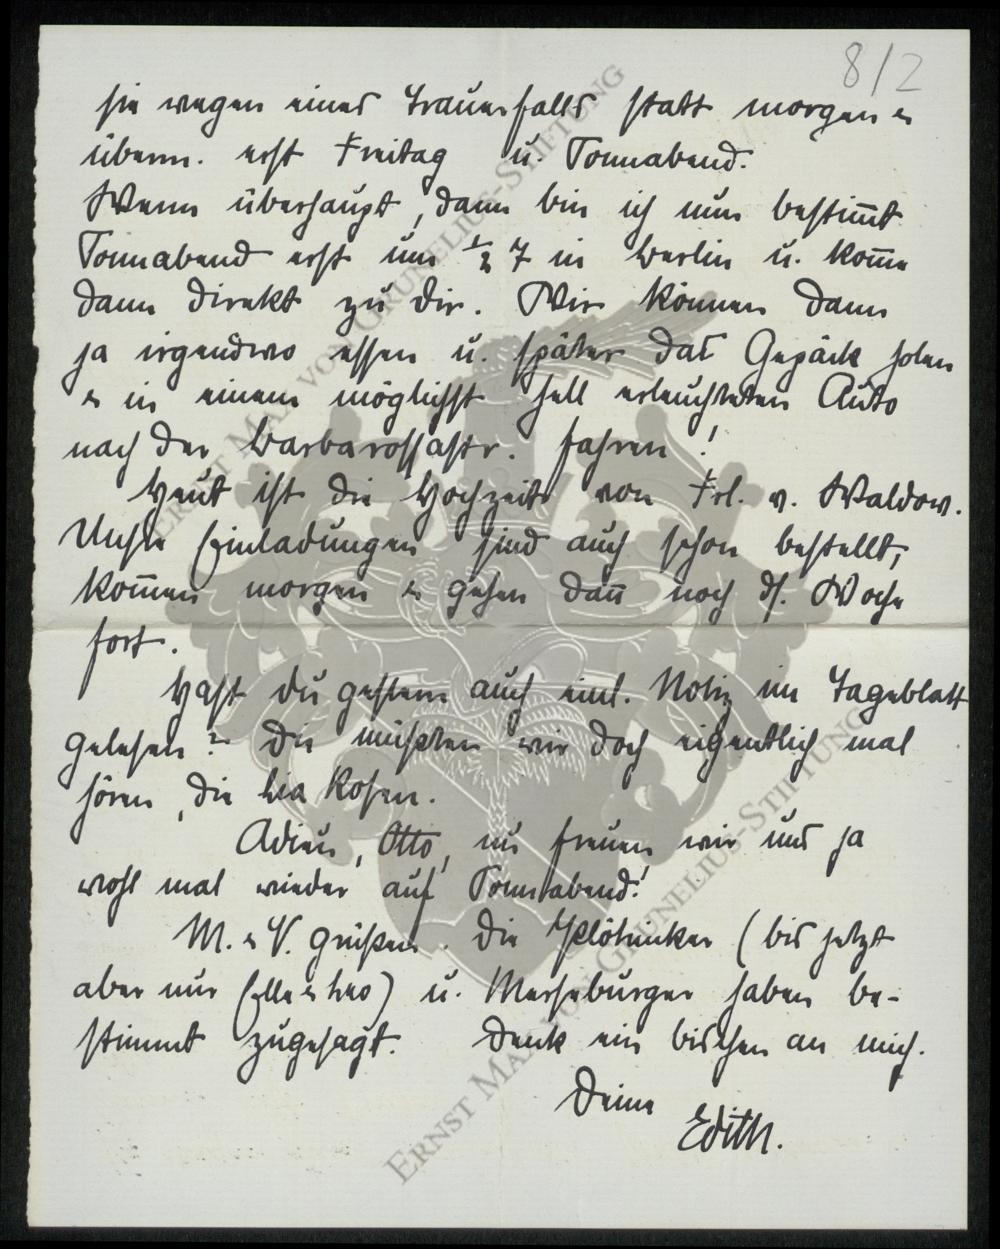 8/2
sie wegen eines Trauerfalls statt morgen &
überm. erst Freitag u. Sonnabend.
Wenn überhaupt, dann bin ich nun bestim̄t
Sonnabend erst um ½ 7 in Berlin u. kom̄e
dann direkt zu Dir. Wir können dann
ja irgendwo essen u. später das Gepäck holen
& in einem möglichst hell erleuchteten Auto
nach der Barbarossastr. fahren!
Heut ist die Hochzeit von Frl. v. Waldow.
Unsre Einladungen sind auch schon bestellt,
kom̄en morgen & gehen dan̄ noch ds. Woche
fort.
Hast du gestern auch die Notiz im Tageblatt
gelesen? Die müßten wir doch eigentlich mal
hören, die Lia Rosen.
Adieu, Otto, nu freuen wir uns ja
wohl mal wieder auf Sonnabend!
M. & V. grüßen. Die (bis jetzt
aber nur Elle & Leo) u. Merseburger haben be-
stimmt zugesagt. Denk ein bischen an mich.
Deine
Edith.
ERNST MAX VON GRUNELIUS-STIFTUNG
ERNST MAX VON GRUNELIUS-STIFTUNG